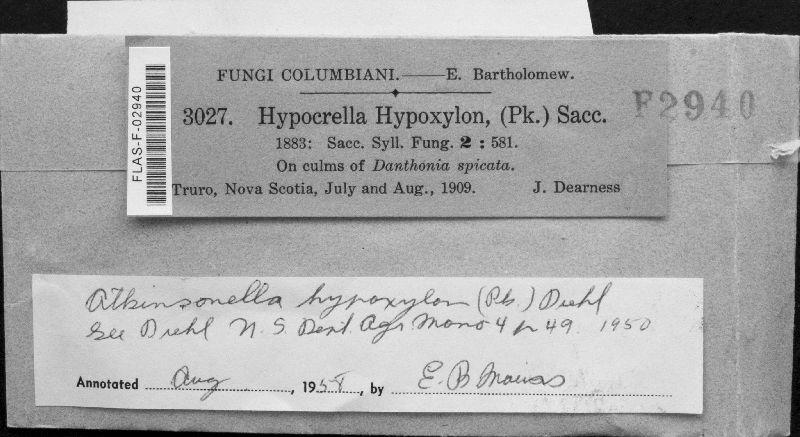 FUNGI COLUMBIANI.——E. Bartholomew.
3027. Hypocrella Hypoxylon, (Pk.) Sacc.
1883: Sacc. Syll. Fung. 2 : 581.
On culms of Danthonia spicata.
Truro, Nova Scotia, July and Aug., 1909. J. Dearness
FLAS-F-02940
F2940
Atkinsonella hypoxylon (Pk.) Diehl
See Diehl Dept. Agr. Mono 4 p 49 1950
Annotated Aug, 195, by E. B. Mains